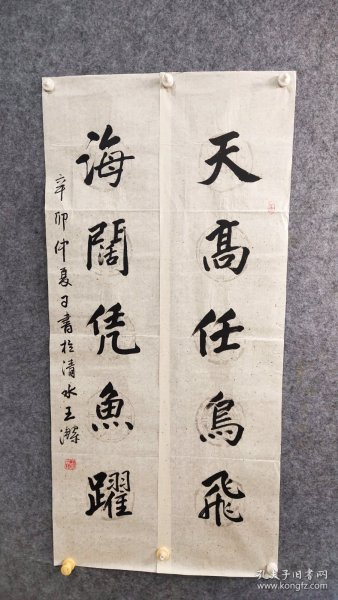 天高任鳥飛
海闊凭魚躍
辛卯仲夏日書於清水王
孔夫子旧书网
www.kongfz.com